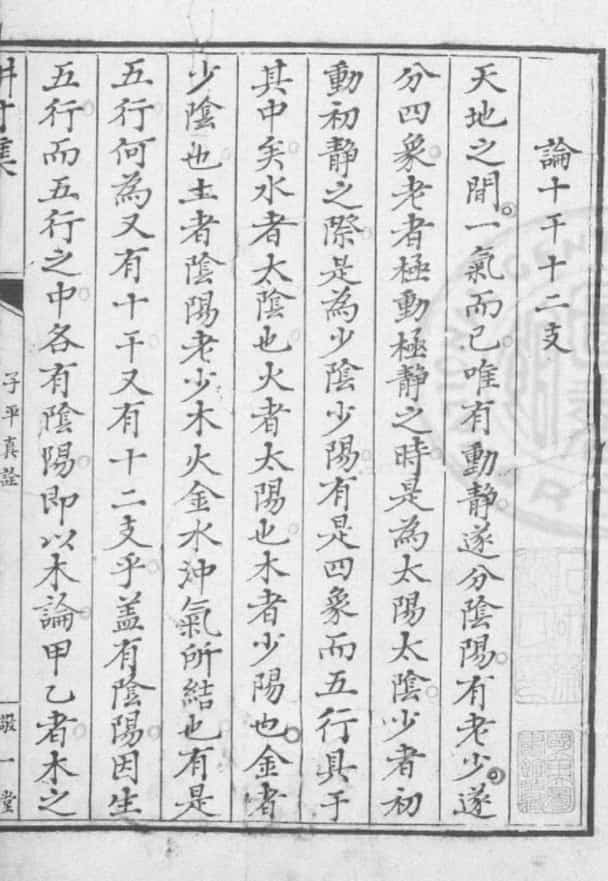 論十干十二支
天地之間一氣而已唯有動静遂分陰陽有老少遂
分四象老者極動極静之時是為太陽太陰少者初
動初静之際是為少陰少陽有是四象而五行具于
其中矣水者太陰也火者太陽也木者少陽也金者
少陰也土者陰陽老少木火金水沖氣所結也有是
五行何為又有十干又有十二支乎盖有陰陽因生
五行而五行之中各有陰陽即以木論甲乙者木之
子平真詮
敬一堂